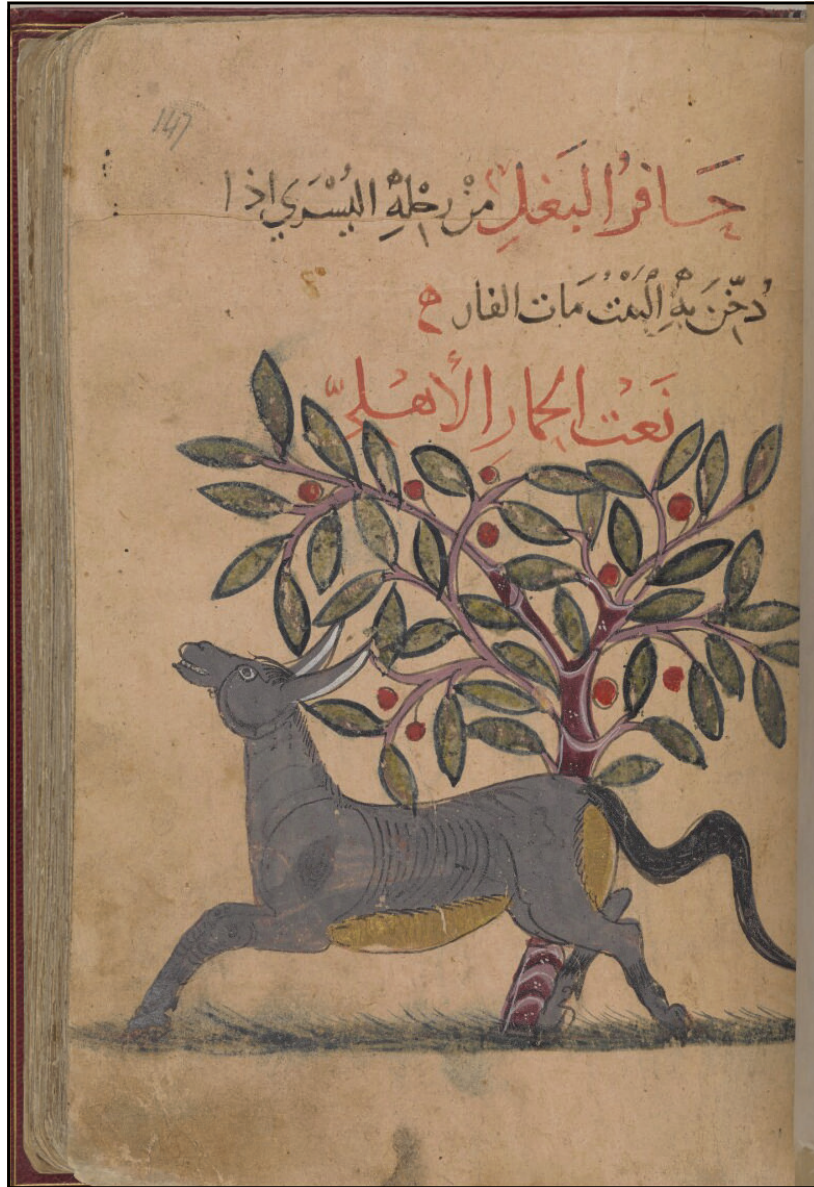 147
حَافرُ البَغلِ مِنْ رِجْلِهِ اليُسْرَي اذا
دُخِّنَ بِهِ الْبَيْتُ مَاتَ الفار ه
نَعْتُ الحِمَارِ الأَهْلِيِّ